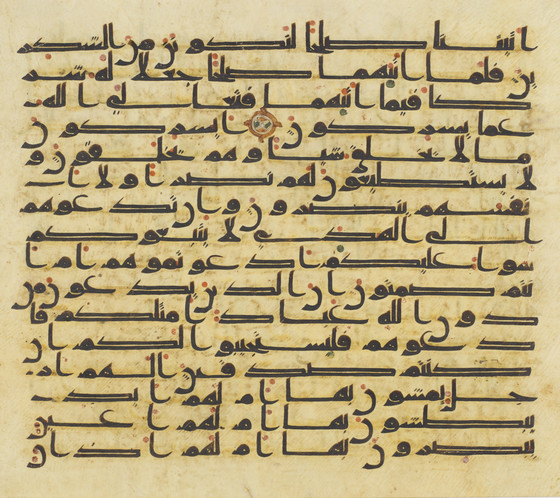 اتيتنا صلحا لنكونن من الشكر
ين فلما اتيهما صلحا جعلا له شر
كا فيما اتيهما فتعلى الله
عما يشركون ايشركون
ما لا يخلق شيا وهم يخلقون و
لا يستطيعون لهم نصرا ولا ا
نفسهم ينصرون وان تدعوهم
الى الهدى لا يتبعوكم
سوا عليكم ادعوتموهم ام ا
نتم صمتون ان الذين تدعون من
دون الله عباد امثلكم فا
دعوهم فليستجيبوا لكم ان
كنتم صدقين الهم ار
جل يمشون بها ام لهم ايد
يبطشون بها ام لهم اعين
يبصرون بها ام لهم اذان